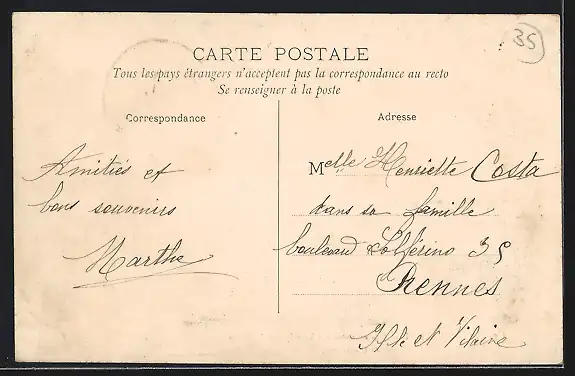 35
CARTE POSTALE
Tous les pays étrangers n'acceptent pas la correspondance au recto
Se renseigner à la poste
Correspondance
Amitiés et
bons souvenirs
Marthe
Adresse
Melle Henriette Costa
dans sa famille
boulevard Solférino 35
Rennes
Ille et Vilaine